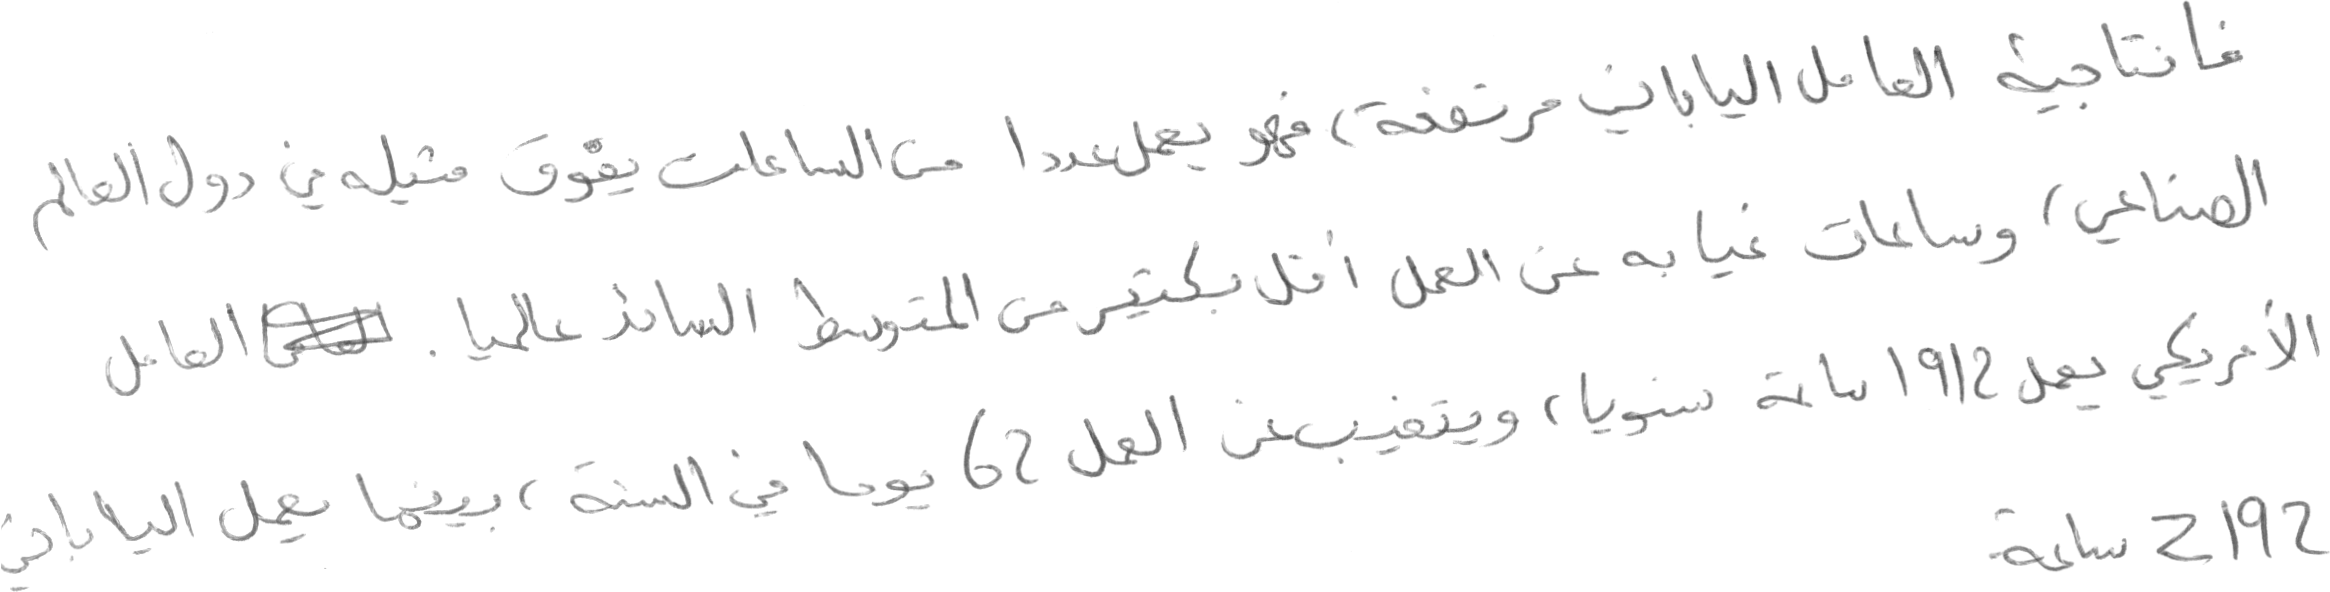 فانتاجية العامل الياباني مرتفعة، فهو يعمل عددا من الساعات يفوق مثيله في دول العالم
الصناعي، وساعات غيابه عن العمل أقل بكثير من المتوسط السائد عالميا. العامل
الأمريكي يعمل 1912 ساعة سنويا، ويتغيب عن العمل 62 يوما في السنة، بينما يعمل الياباني
2192 ساعة